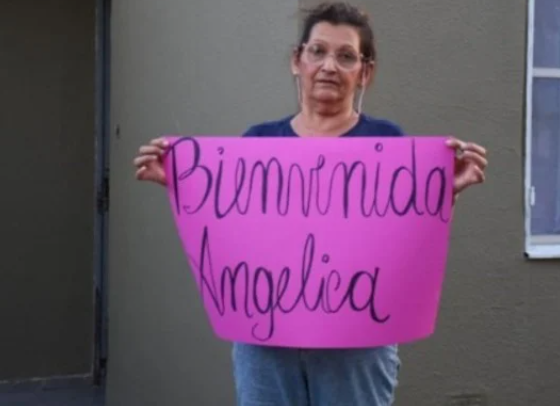 Bienvenida
Angelica